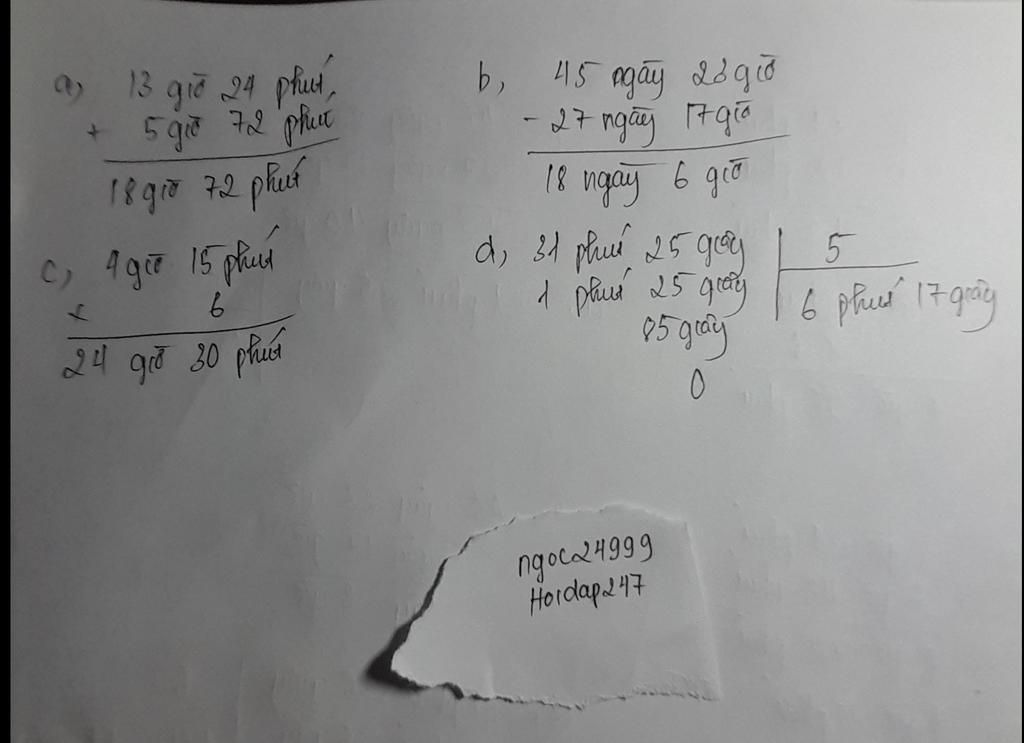 a, 13 giờ 24 phút
+ 5 giờ 72 phút
18 giờ 72 phút
b, 45 ngày 23 giờ
- 27 ngày 17 giờ
18 ngày 6 giờ
c, 4 giờ 15 phút
x 6
24 giờ 30 phút
d, 31 phút 25 giây 5
1 phút 25 giây 6 phút 17 giây
85 giây
0
ngoc24999
Hoidap247